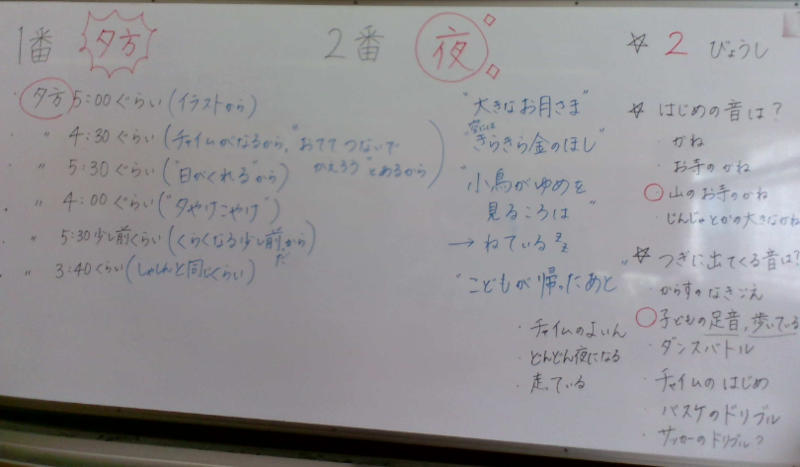 1番 夕方
・夕方 5:00ぐらい(イラストから)
・〃 4:30ぐらい(チャイムがなるから、"おててつないで
かえろう"とあるから)
〃 5:30ぐらい("日がくれる"から)
・〃 4:00ぐらい("夕やけこやけ")
・〃 5:30少し前くらい(くらくなる少し前だから)
・〃 3:40くらい(しゃしんと同じくらい)
2番 夜
"大きなお月さま"
空には
"きらきら金のほし"
"小鳥がゆめを
見るころは"
→ ねている zz
"こどもが帰ったあと"
・チャイムのよいん
・どんどん夜になる
・走っている
☆ 2 びょうし
☆ はじめの音は?
・かね
・お寺のかね
○山のお寺のかね
・じんじゃとかの大きなかね
☆ つぎに出てくる音は?
・からすのなきごえ
○子どもの足音、歩いている
・ダンスバトル
・チャイムのはじめ
・バスケのドリブル
・サッカーのドリブル?